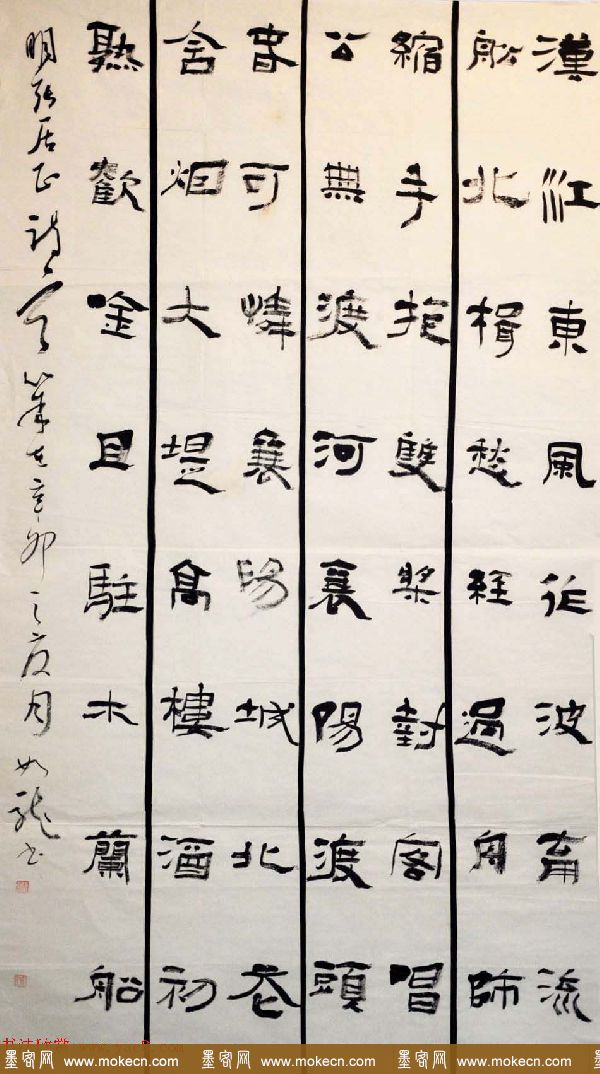 漢江東風作波流
船北楫愁經過舟師
縮手抱雙槳對客唱
公無渡河襄陽渡頭
春可憐襄陽城北花
含烟大堤高樓酒初
熟歡唫且駐木蘭船
明張居正詩一首 辛卯之夏月如龍書
墨客网 www.mokecn.com 墨客网 www.mokecn.com 墨客网 www.mokecn.com